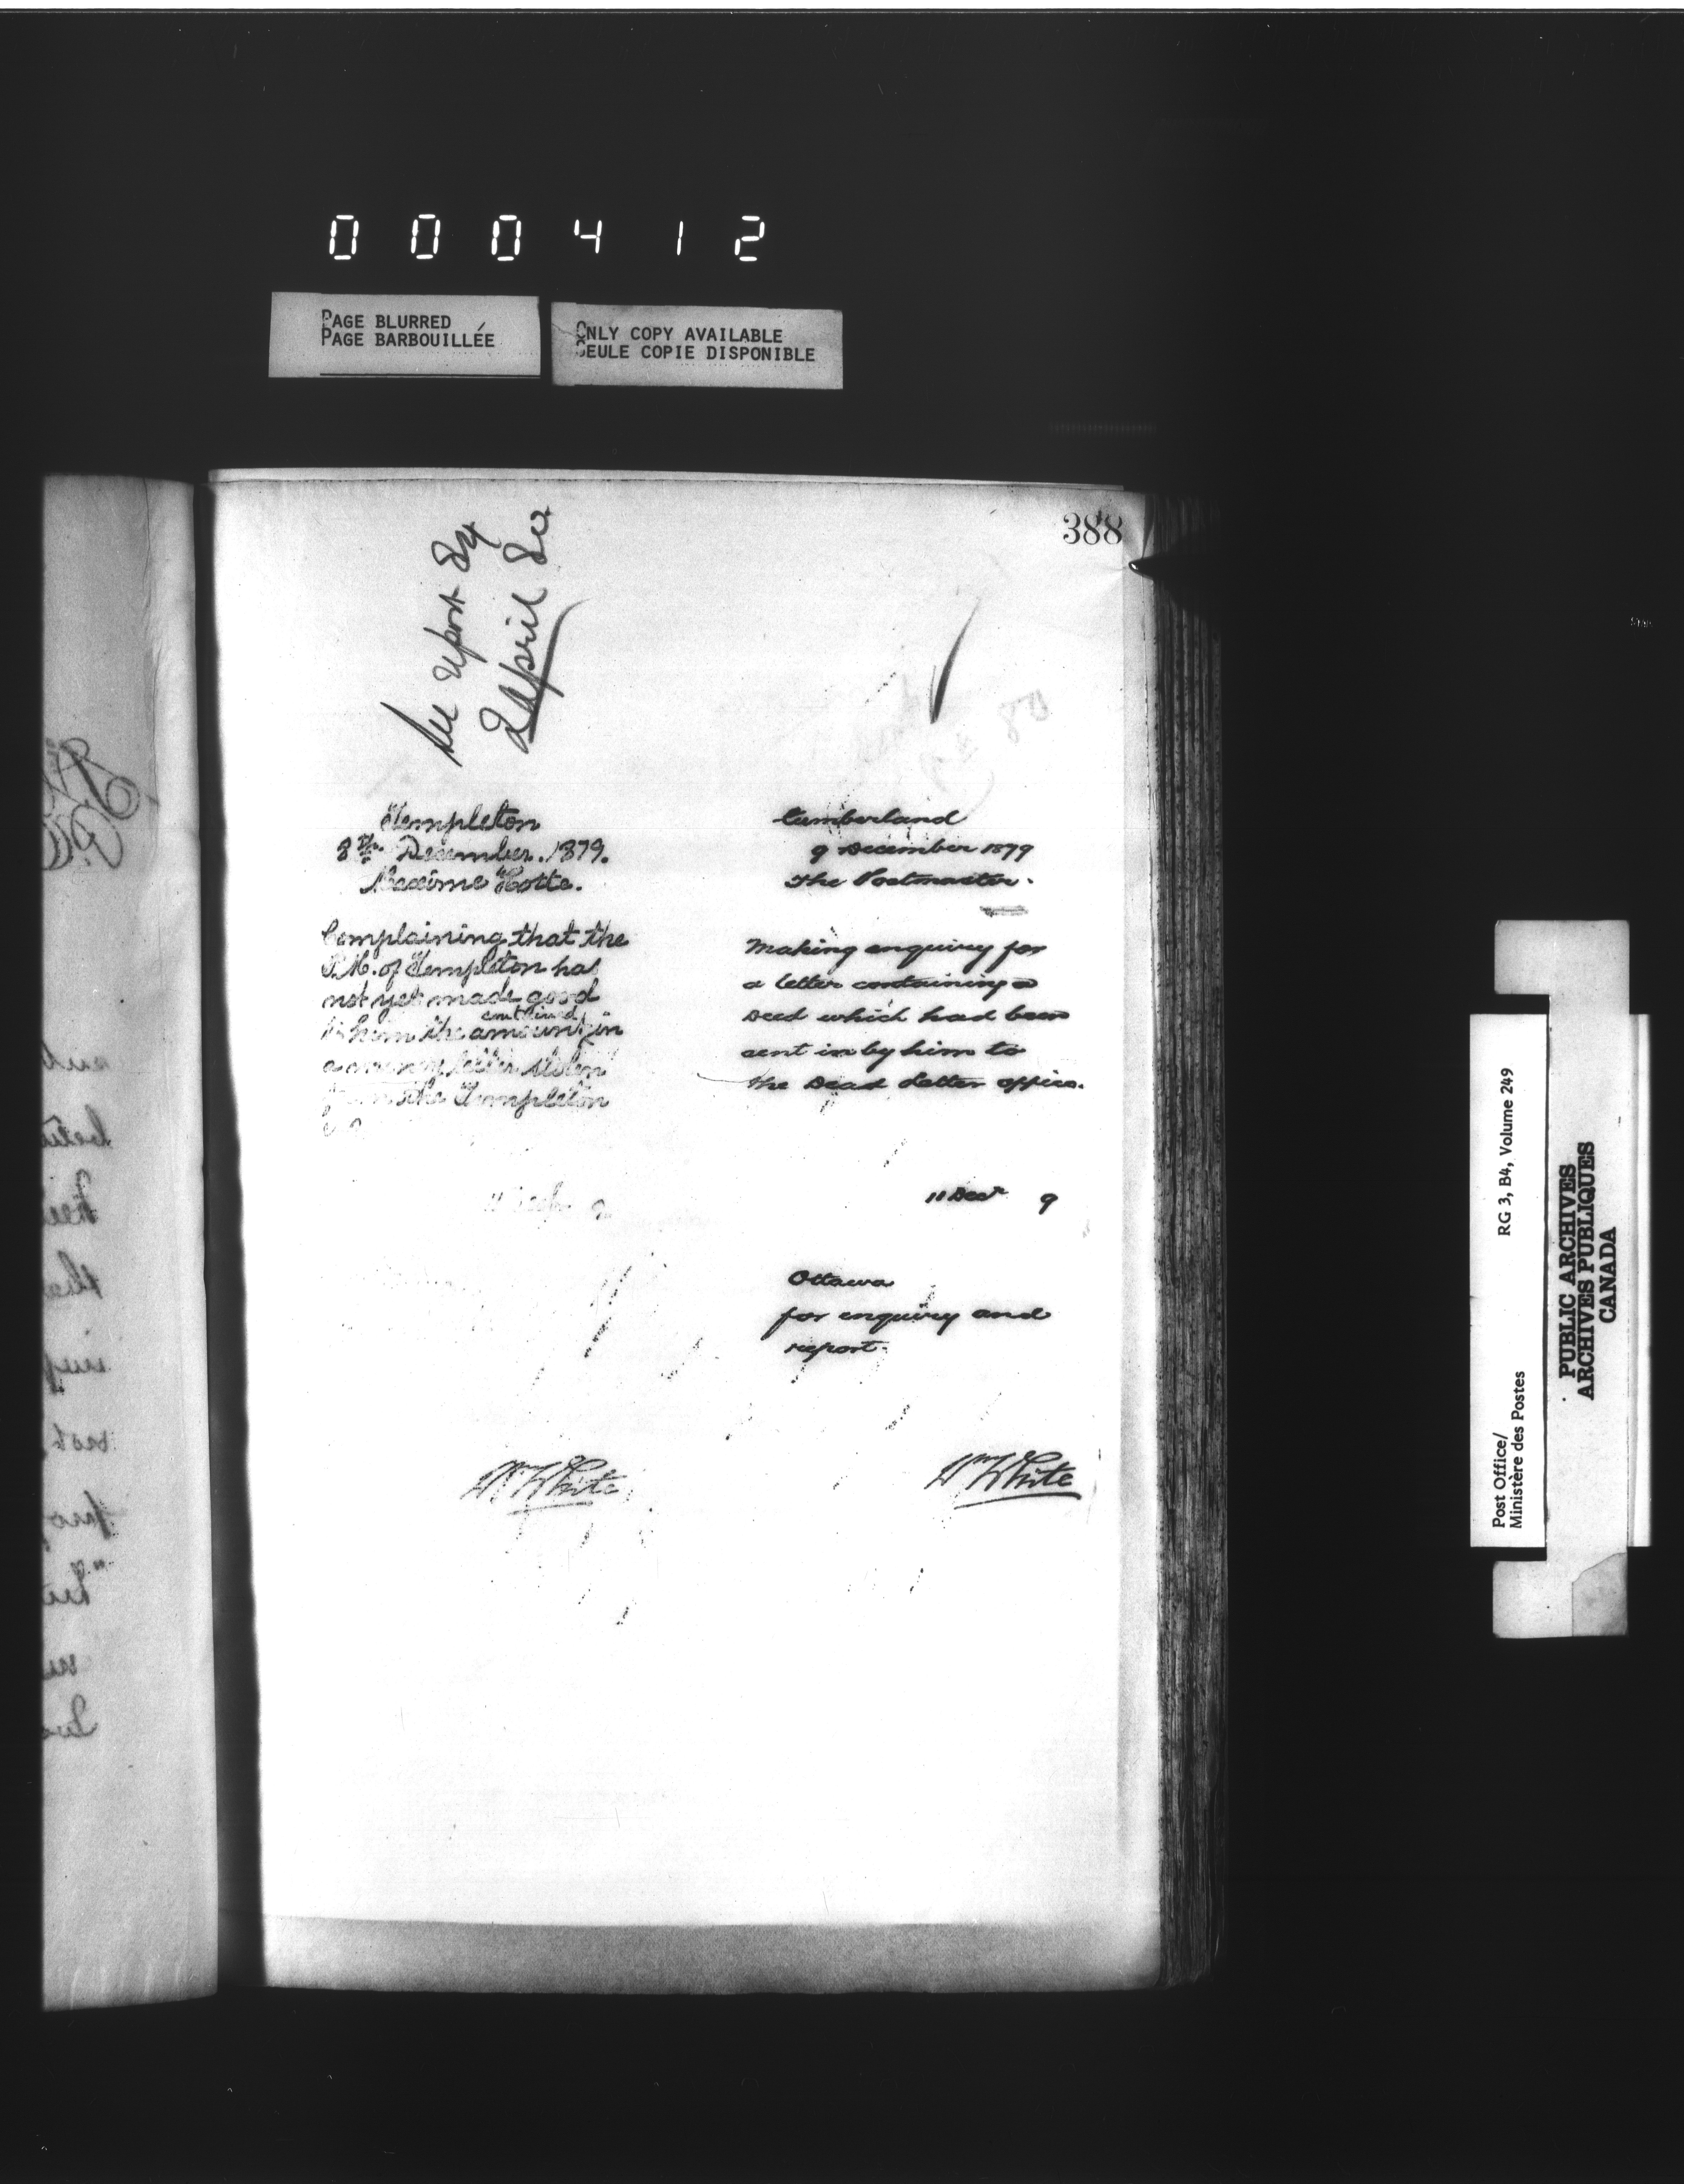 000412
PAGE BLURRED
PAGE BARBOUILLÉE
ONLY COPY AVAILABLE
SEULE COPIE DISPONIBLE
388
See report
2 April 80
Templeton
8th December. 1879.
Maxime Hotte.
Complaining that the
P.M. of Templeton has
not yet made good
to him the amount contained in
a money letter stolen
from the Templeton
Wm White
Cumberland
9 December 1879
The Postmaster.
Making enquiry for
a letter containing a
Deed which had been
sent in by him to
the Dead Letter Office.
11 Decr 9
Ottawa
for enquiry and
report.
Wm White
Post Office/
Ministère des Postes
RG 3, B4, Volume 249
PUBLIC ARCHIVES
ARCHIVES PUBLIQUES
CANADA